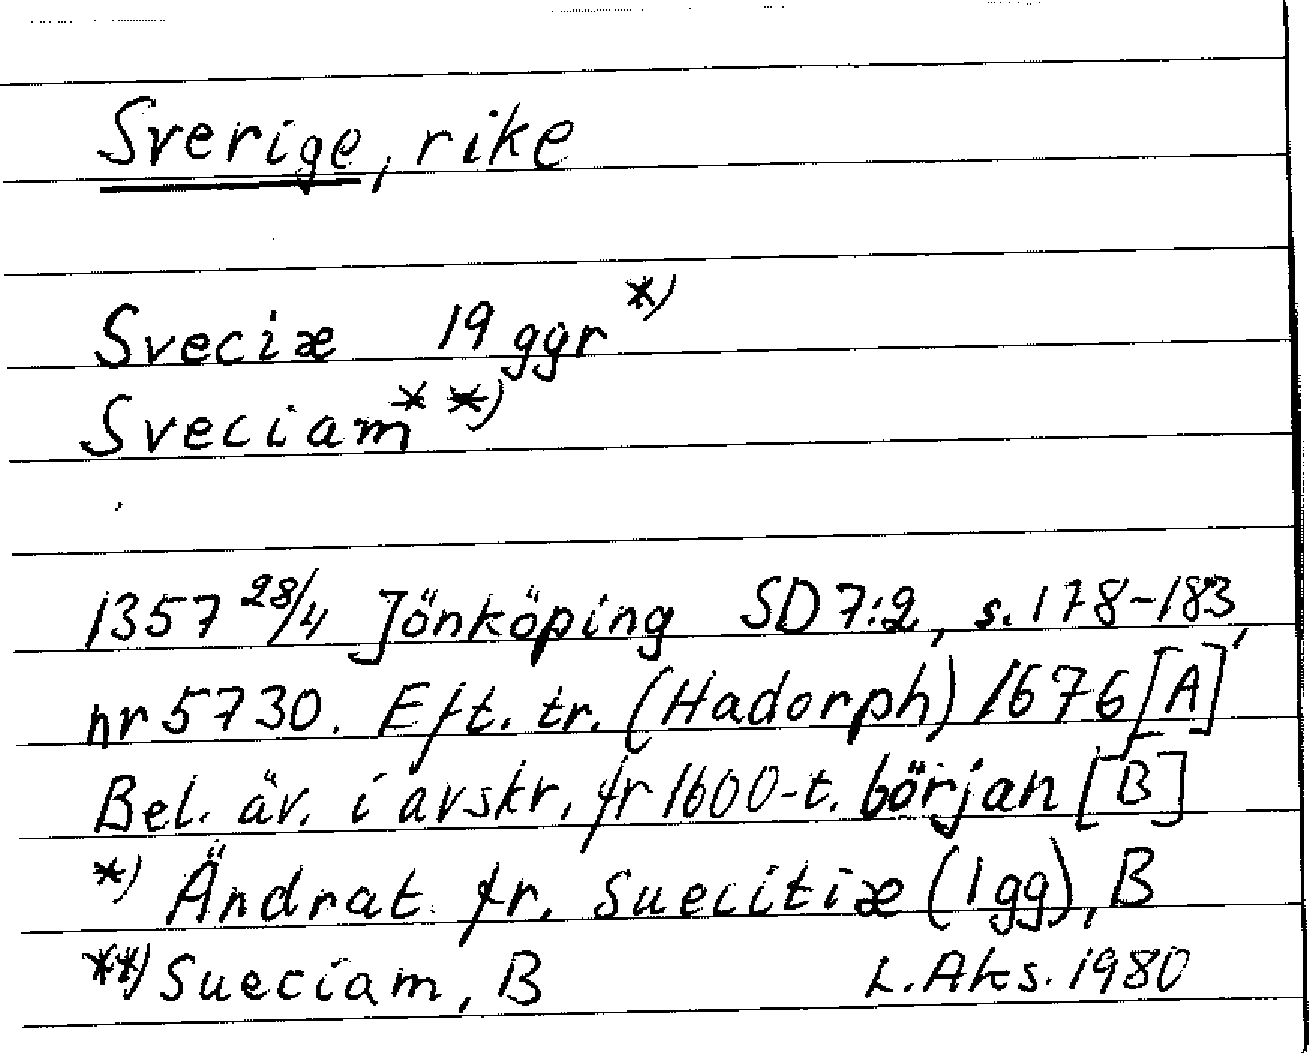 Sverige, rike
Sveciæ 19 ggr *)
Sveciam **)
1357 28/4 Jönköping SD 7:2, s. 178-183,
nr 5730. Eft. tr. (Hadorph) 1676 [A]
Bel. äv. i avskr. fr 1600-t. början [B]
*) Ändrat fr. Suecitiæ (1 gg), B
**) Sueciam, B L. Aks. 1980